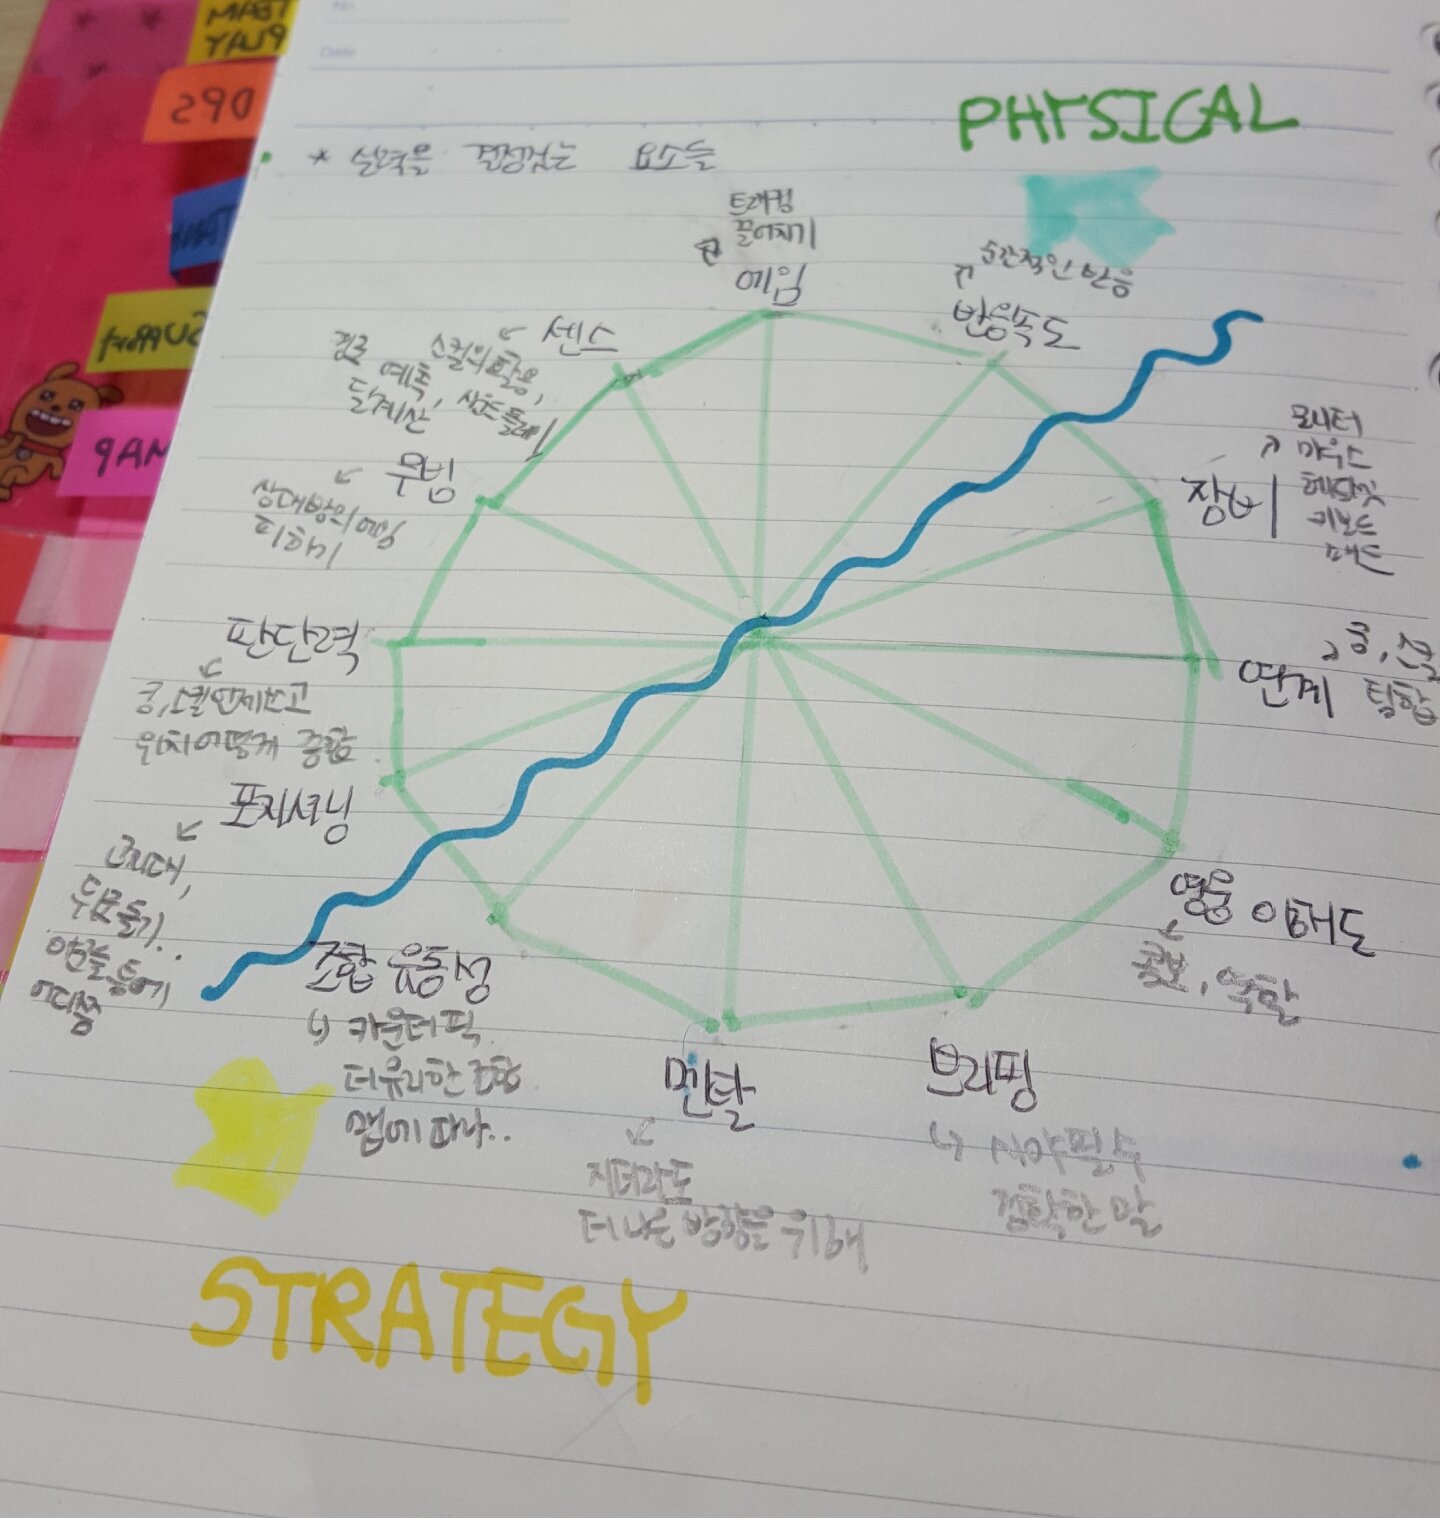 No.
Date
TEAM
PLAY
DPS
SUPPORT
MAP
PHYSICAL
* 실력을 결정짓는 요소들
트래킹
끌어치기
에임
순간적인 반응
반응속도
센스
스킬의 활용,
경로 예측, 사운드플레이
딜계산
무빙
상대방의 에임
피하기
장비
모니터
마우스
헤드셋
키보드
패드
판단력
궁, 스킬 언제쓰고
위치 어떻게 종합
딴계
궁,
팀합
포지셔닝
뒤로 돌기..
영웅 이해도
콤보, 역할
조합 유동성
카운터픽
더 유리한 조합
맵에 따라..
멘탈
지더라도
더 나은 방향을 위해
브리핑
시야 필수
정확한 말
STRATEGY